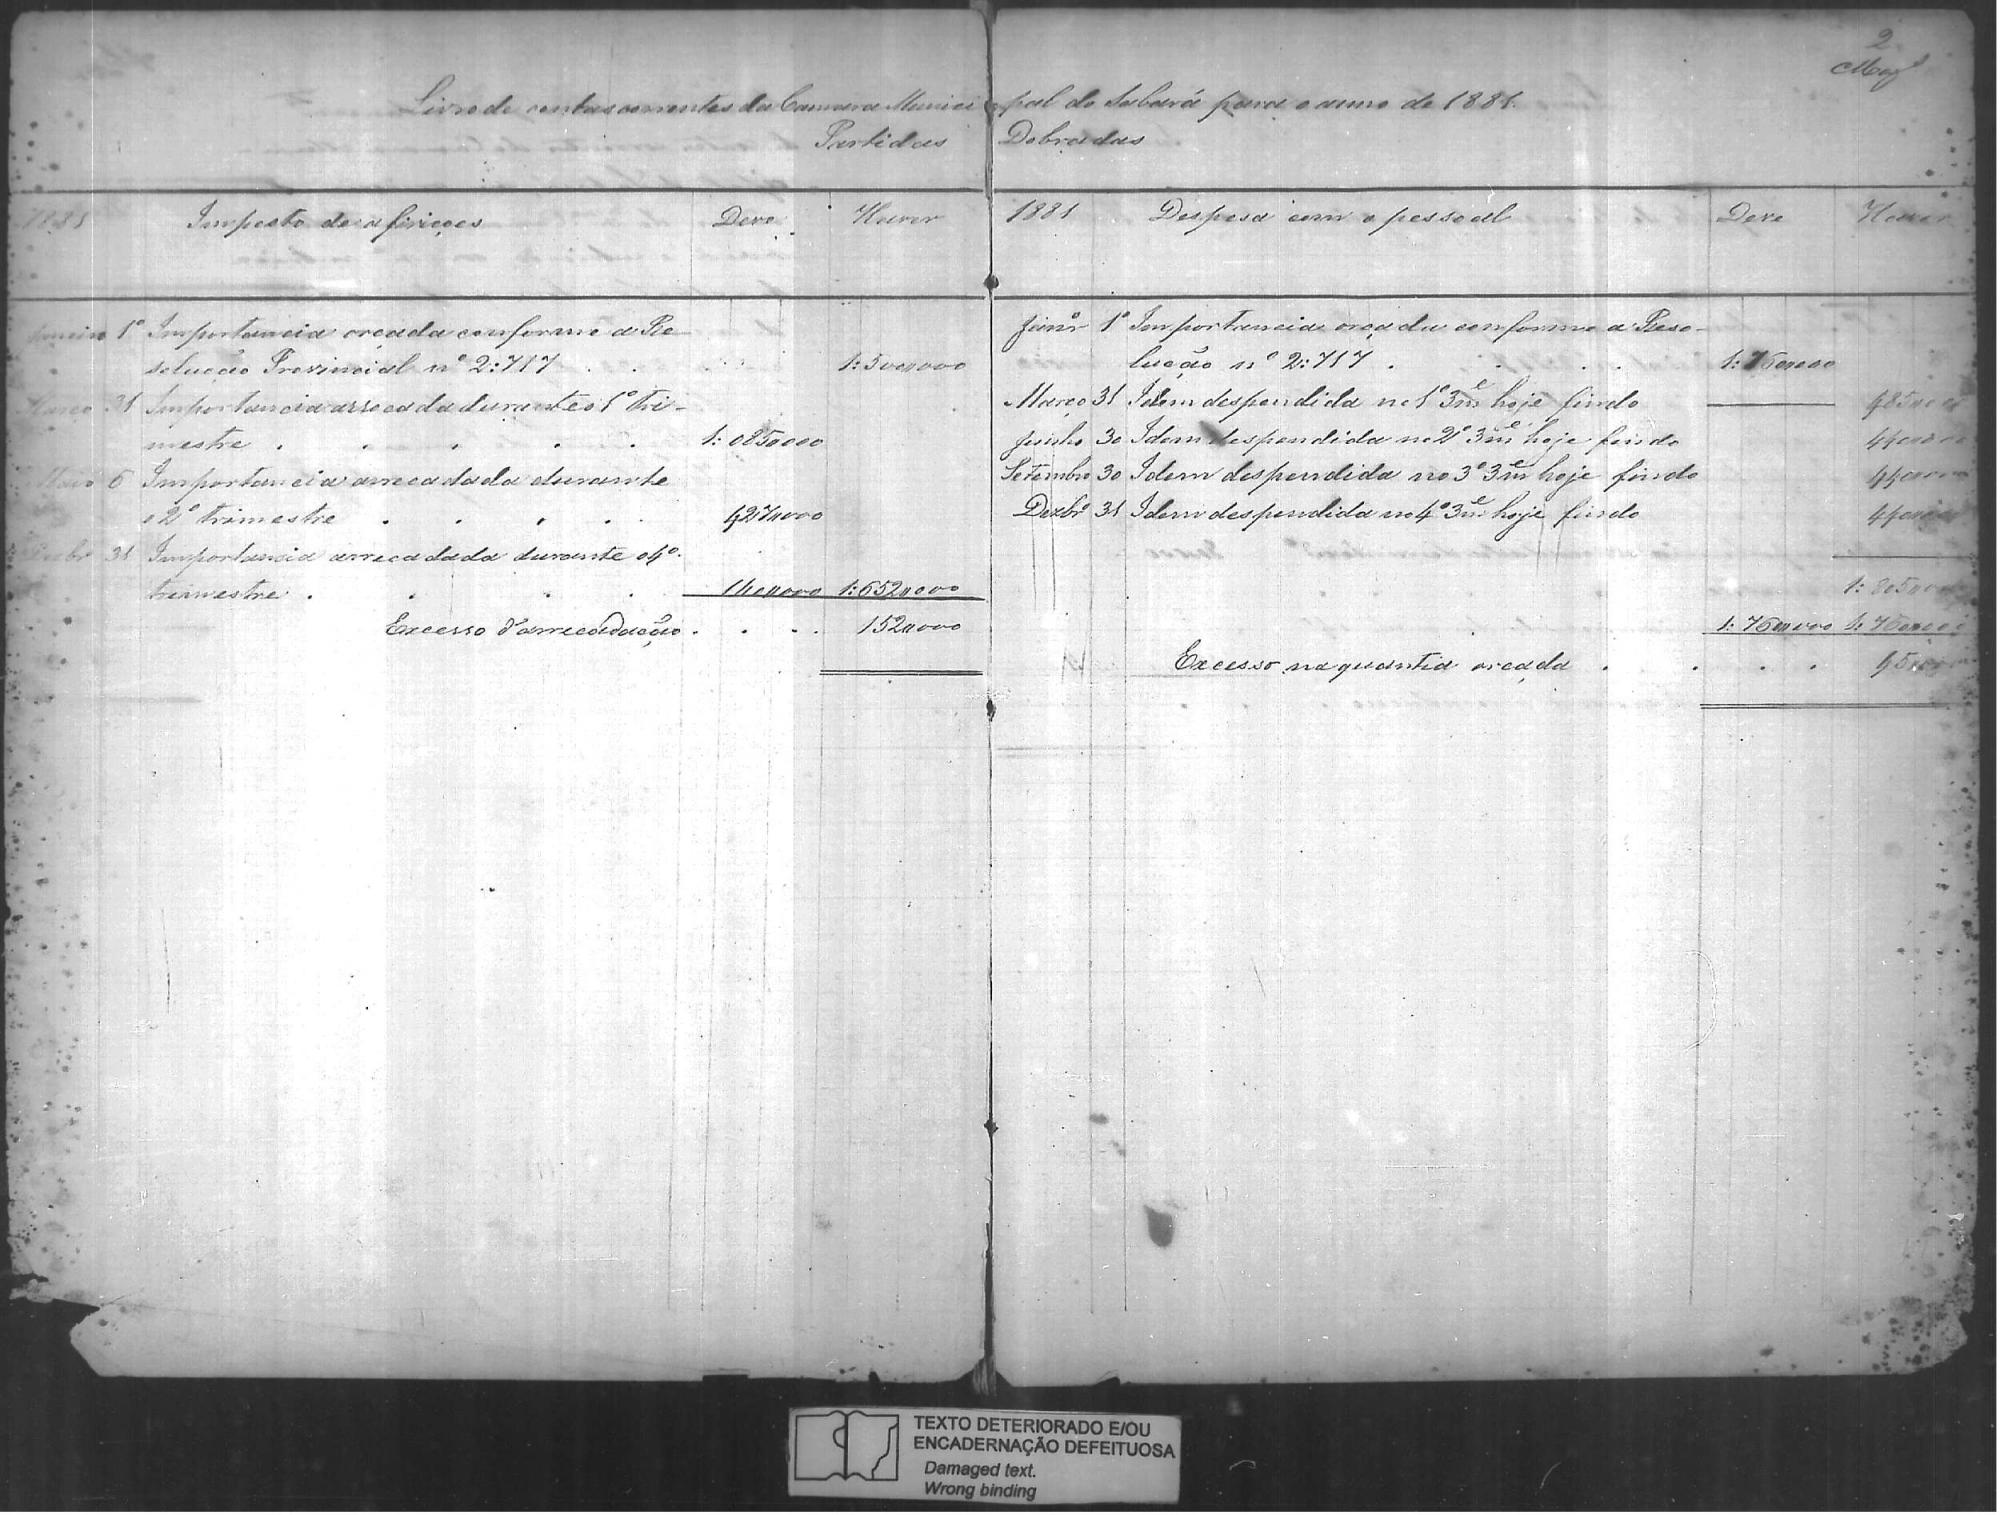 2
Livro de contas correntes da Camara Municipal do Sabará para o anno de 1881.
Partidas Dobradas
1881 Imposto de afirições Deve Haver
Janeiro 1º Importancia orçada conforme a Re
solução Provincial nº 2:717 . . 1:500$000
Março 31 Importancia arrecada durante o 1º tri-
mestre . . . . . 1:085$000
Maio 6 Importancia arrecadada durante
o 2º trimestre . . . . 427$000
Dezbrº 31 Importancia arrecadada durante o 4º
trimestre . . . . 140$000 1:652$000
Excesso d'arrecadação . . . . 152$000
1881 Despesa com o pessoal Deve Haver
Janrº 1º Importancia orçada conforme a Reso-
lução nº 2:717 . . . 1:760$000
Março 31 Idem despendida no 1º 3me hoje findo 485$000
Junho 30 Idem despendida no 2º 3me hoje findo 440$000
Setembro 30 Idem despendida no 3º 3me hoje findo 440$000
Dezbrº 31 Idem despendida no 4º 3me hoje findo 440$000
1:805$000
1:760$000 1:760$000
Excesso na quantia orçada . . . . 45$000
TEXTO DETERIORADO E/OU
ENCADERNAÇÃO DEFEITUOSA
Damaged text.
Wrong binding